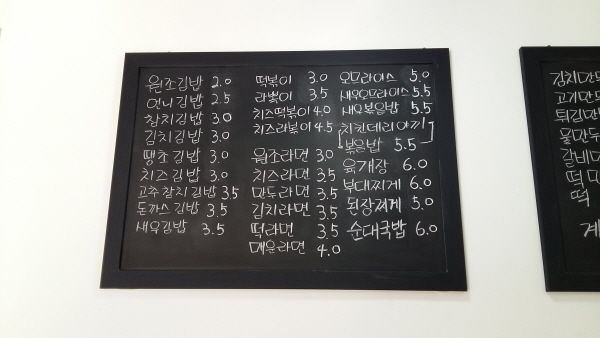 원조김밥 2.0
언니김밥 2.5
참치김밥 3.0
김치김밥 3.0
땡초김밥 3.0
치즈김밥 3.0
고추참치김밥 3.5
돈까스김밥 3.5
새우김밥 3.5
떡볶이 3.0
라볶이 3.5
치즈떡볶이 4.0
치즈라볶이 4.5
원조라면 3.0
치즈라면 3.5
만두라면 3.5
김치라면 3.5
떡라면 3.5
해물라면 4.0
오므라이스 5.0
새우오므라이스 5.5
새우볶음밥 5.5
치킨데리야끼
볶음밥 5.5
육개장 6.0
부대찌게 6.0
된장찌게 5.0
순대국밥 6.0
김치만두
고기만두
튀김만
물만두
갈비
떡
떡
계